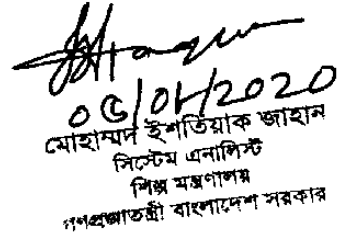 05/01/2020
মোহাম্মদ ইশতিয়াক জাহান
সিস্টেম এনালিস্ট
শিল্প মন্ত্রণালয়
গণপ্রজাতন্ত্রী বাংলাদেশ সরকার